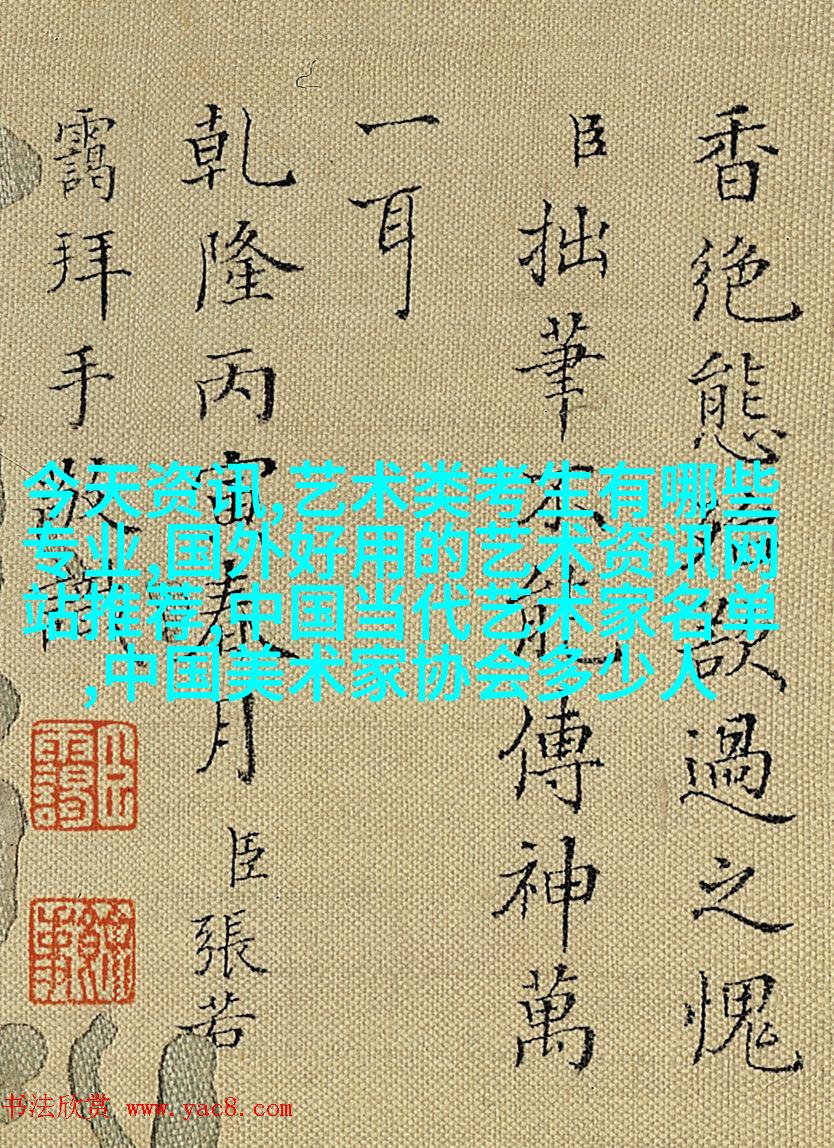 香絶態欲過之愧
臣拙筆不能傳神萬
一耳
乾隆丙寅春月臣張若
靄拜手敬識
臣靄
今天资讯,艺术类考生有哪些
专业,国外好用的艺术资讯网
站推荐,中国当代艺术家名单
,中国美术家协会多少人
书法欣赏 www.yac8.com